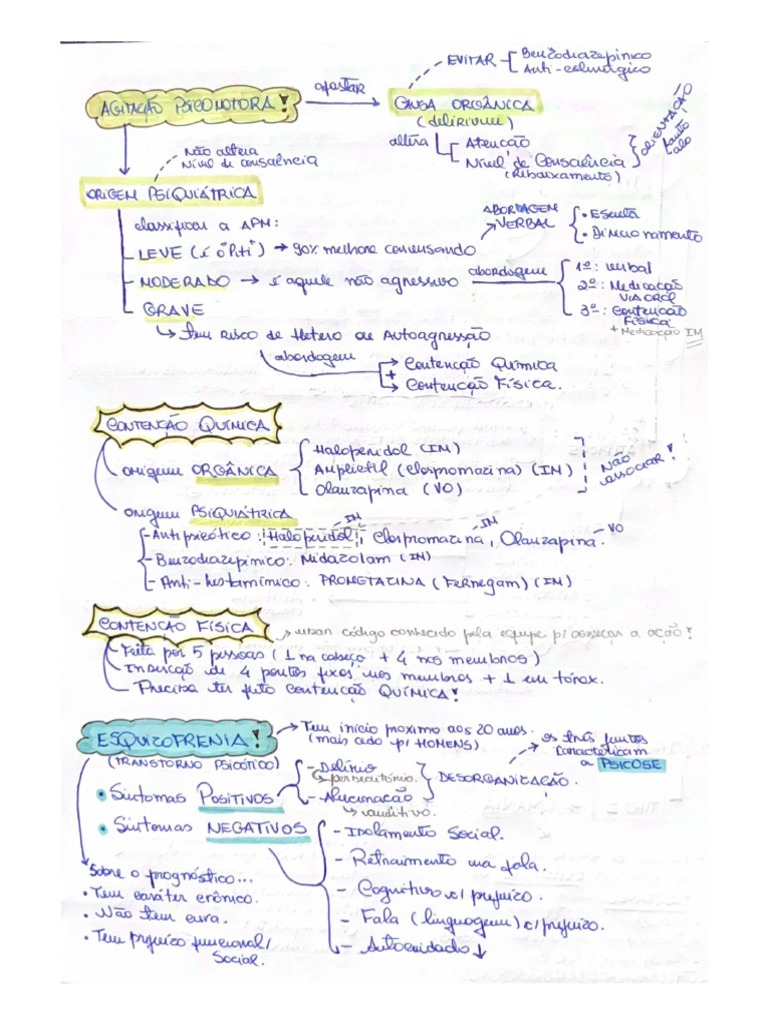 EVITAR
Benzodiazepínico
Anti-colinérgico
AGITAÇÃO PSICOMOTORA!
afastar
CAUSA ORGÂNICA
(delirium)
altera
Atenção
Nível de Consciência
(Rebaixamento)
ORIENTAÇÃO
Não altera
Nível de consciência
ORIGEM PSIQUIÁTRICA
classificar a APM:
LEVE (é o "Piti") → 90% melhora conversando
ABORDAGEM
VERBAL
• Escuta
• Direcionamento
MODERADO → é aquele não agressivo
abordagem
1º: verbal
2º: Medicação
VIA ORAL
3º: Contenção
Física
+ Medicação IM
GRAVE
↳ tem risco de Hetero ou Autoagressão
abordagem
→ Contenção Química
+
→ Contenção Física.
CONTENÇÃO QUÍMICA
origem ORGÂNICA
Haloperidol (IM)
Amplictil (clorpromazina) (IM)
Olanzapina (VO)
NÃO
associar!
origem PSIQUIÁTRICA
- Antipsicótico: Haloperidol - IM, Clorpromazina - IM, Olanzapina. - VO
- Benzodiazepínico: Midazolam (IM)
- Anti-histamínico: PROMETAZINA (Fernegam) (IM)
CONTENÇÃO FÍSICA
→ usar código conhecido pela equipe p/ começar a ação!
- Feita por 5 pessoas (1 na cabeça + 4 nos membros)
- Inserção de 4 pontos fixos nos membros + 1 em tórax.
- Precisa ter feito Contenção QUÍMICA!
ESQUIZOFRENIA!
(TRANSTORNO PSICÓTICO)
→ Tem início próximo aos 20 anos.
(mais cedo p/ HOMENS)
os três juntos
caracterizam
a PSICOSE
• Sintomas POSITIVOS
- Delírio
↳ persecutório.
- Alucinação
↳ auditivo.
DESORGANIZAÇÃO.
• Sintomas NEGATIVOS
- Isolamento Social.
- Retraimento na fala.
- Cognitivo c/ prejuízo.
- Fala (linguagem) c/ prejuízo.
- Autocuidado ↓
Sobre o prognóstico...
• Tem caráter crônico.
• Não tem cura.
• Tem prejuízo funcional/
Social.